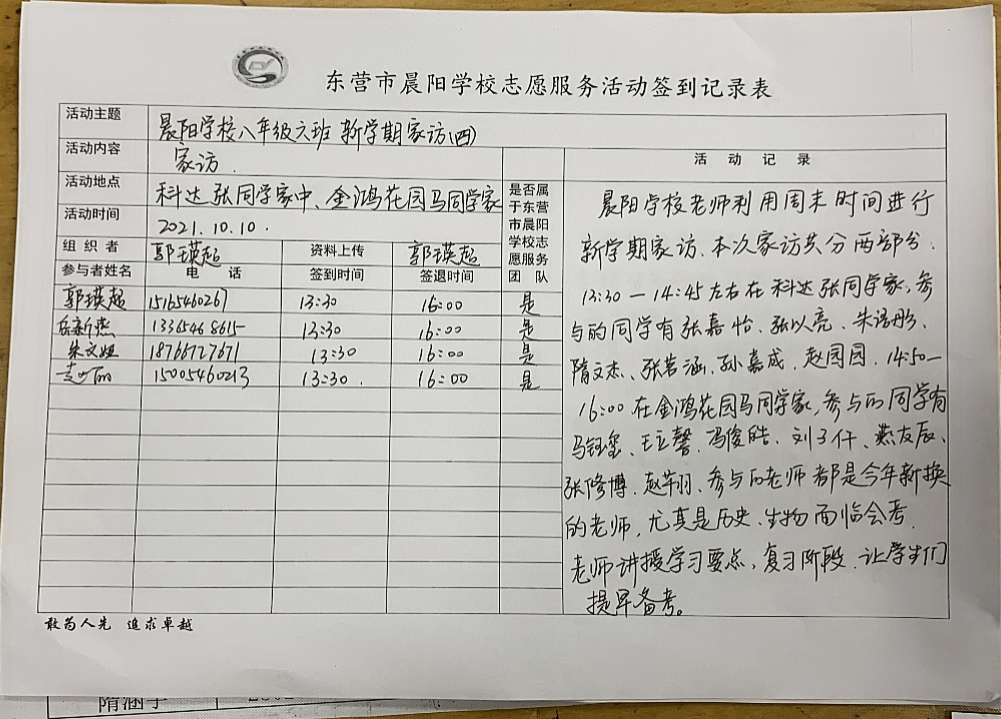 东营市晨阳学校志愿服务活动签到记录表
活动主题 晨阳学校八年级六班 新学期家访(四)
活动内容 家访.
活动地点 科达张同学家中、金鸿花园马同学家
活动时间 2021.10.10.
是否属于东营市晨阳学校志愿服务团队
组织者 郭瑛超 资料上传 郭瑛超
参与者姓名 电话 签到时间 签退时间
郭瑛超 15165460267 13:30 16:00 是
岳新燕 13365468615 13:30 16:00 是
朱文妲 18766727671 13:30 16:00 是
15005460213 13:30. 16:00 是
活动记录
晨阳学校老师利用周末时间进行
新学期家访.本次家访共分两部分.
13:30—14:45左右在科达张同学家,参
与的同学有张嘉怡、张以亮、朱语彤、
隋文杰、张若涵、孙嘉成、赵园园.14:50—
16:00在金鸿花园马同学家,参与的同学有
马钰玺、王立馨、冯俊皓、刘子仟、燕友辰、
张修博、赵芊羽、参与的老师都是今年新换
的老师,尤其是历史、生物面临会考.
老师讲授学习要点,复习阶段.让学生们
提早备考。
敢为人先 追求卓越
隋涵宇